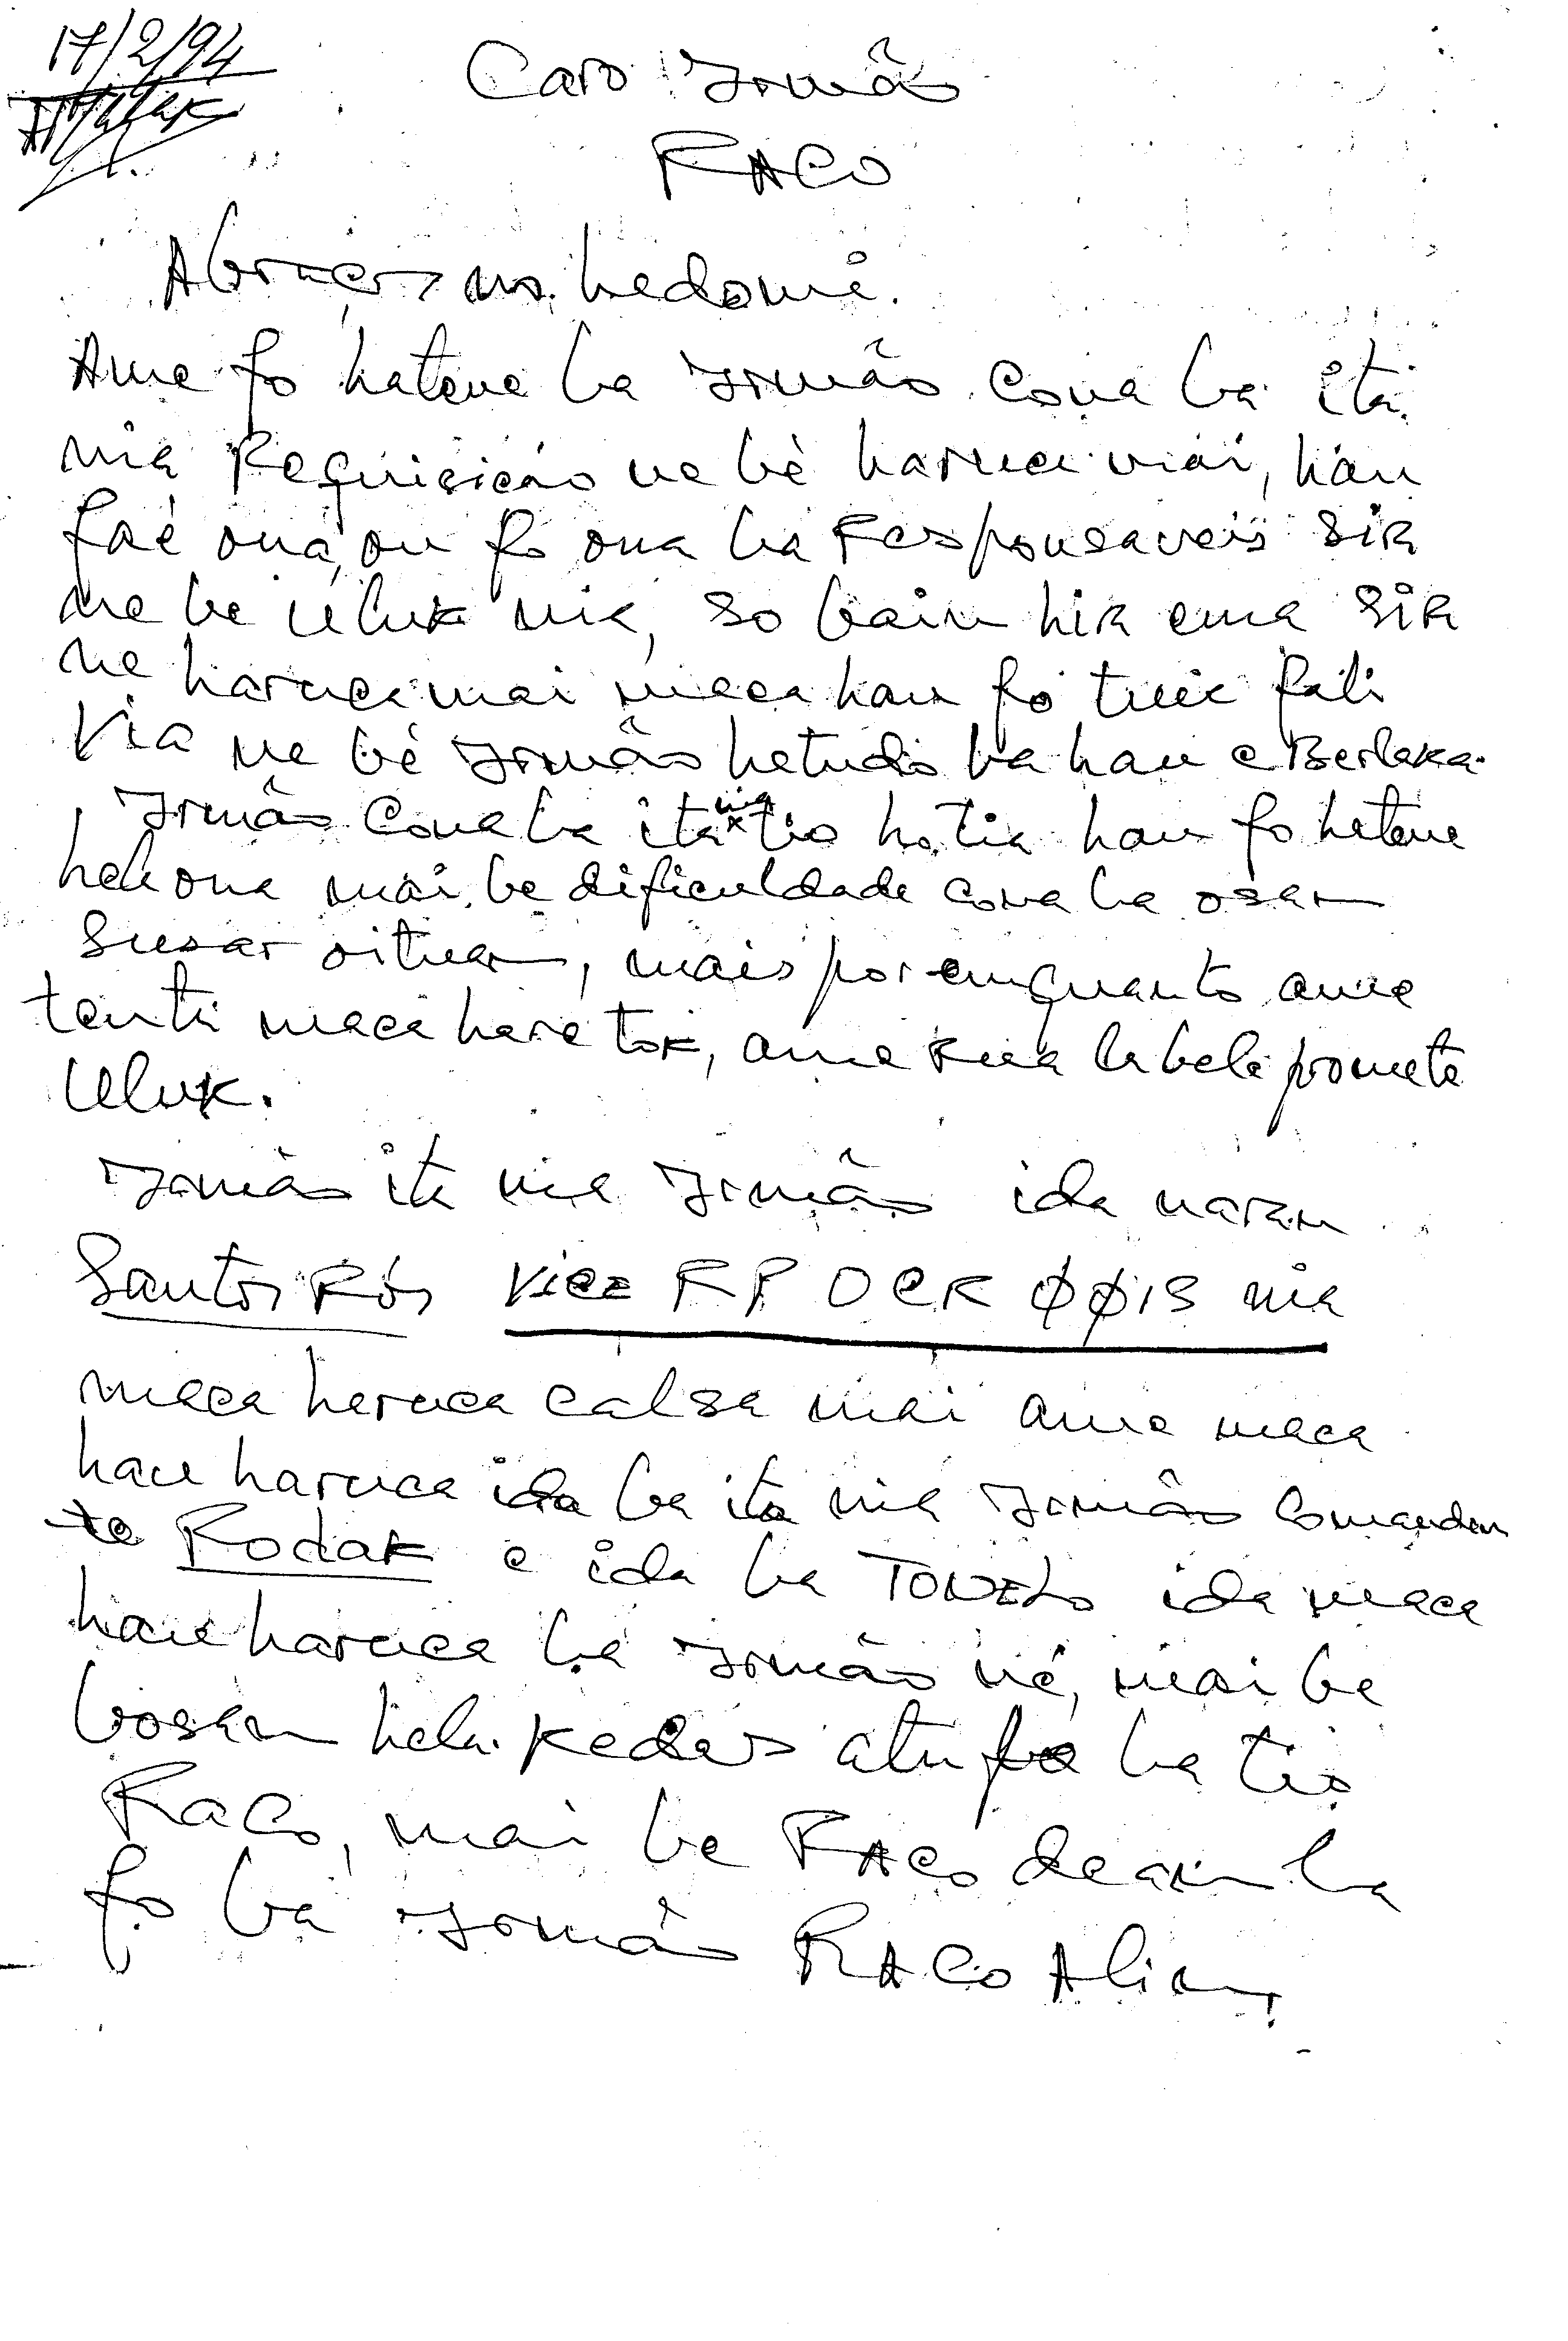 17/2/94
Caro Irmão
RACO
Abraços no hadomi.
Ame fo hatene ba Irmão cona ba ita
nia Requisicão ne bé haruca mai, hau
faé ona, ou fo ona ba Responsaveis sira
ne be uluk nia, so bain hira ema sira
ne haruca mai maca hau fo tuir fali
Via ne bé Irmão hetudo ba hau e Berlaka.
Irmão cona ba ita nia tio hotia hau fo hatene
hela ona mai be dificuldade cona ba osan
susar oituan, mais por emquanto ame
tenta maca hare tok, ame rua la bele promete
Uluk.
Irmão ita nia Irmão ida naran
Santos Rós Vice RP OCR ØØ13 nia
maca haruca calsa mai ame maca
hau haruca ida ba ita nia Irmão Comandan
te Rodak e ida ba TONELO ida maca
hau haruca ba Irmão né, mai be
bosan hela. Kedas atu fo ba tio
RaCo, mai be RACO dean la
fo ba Irmão RACO Alin,